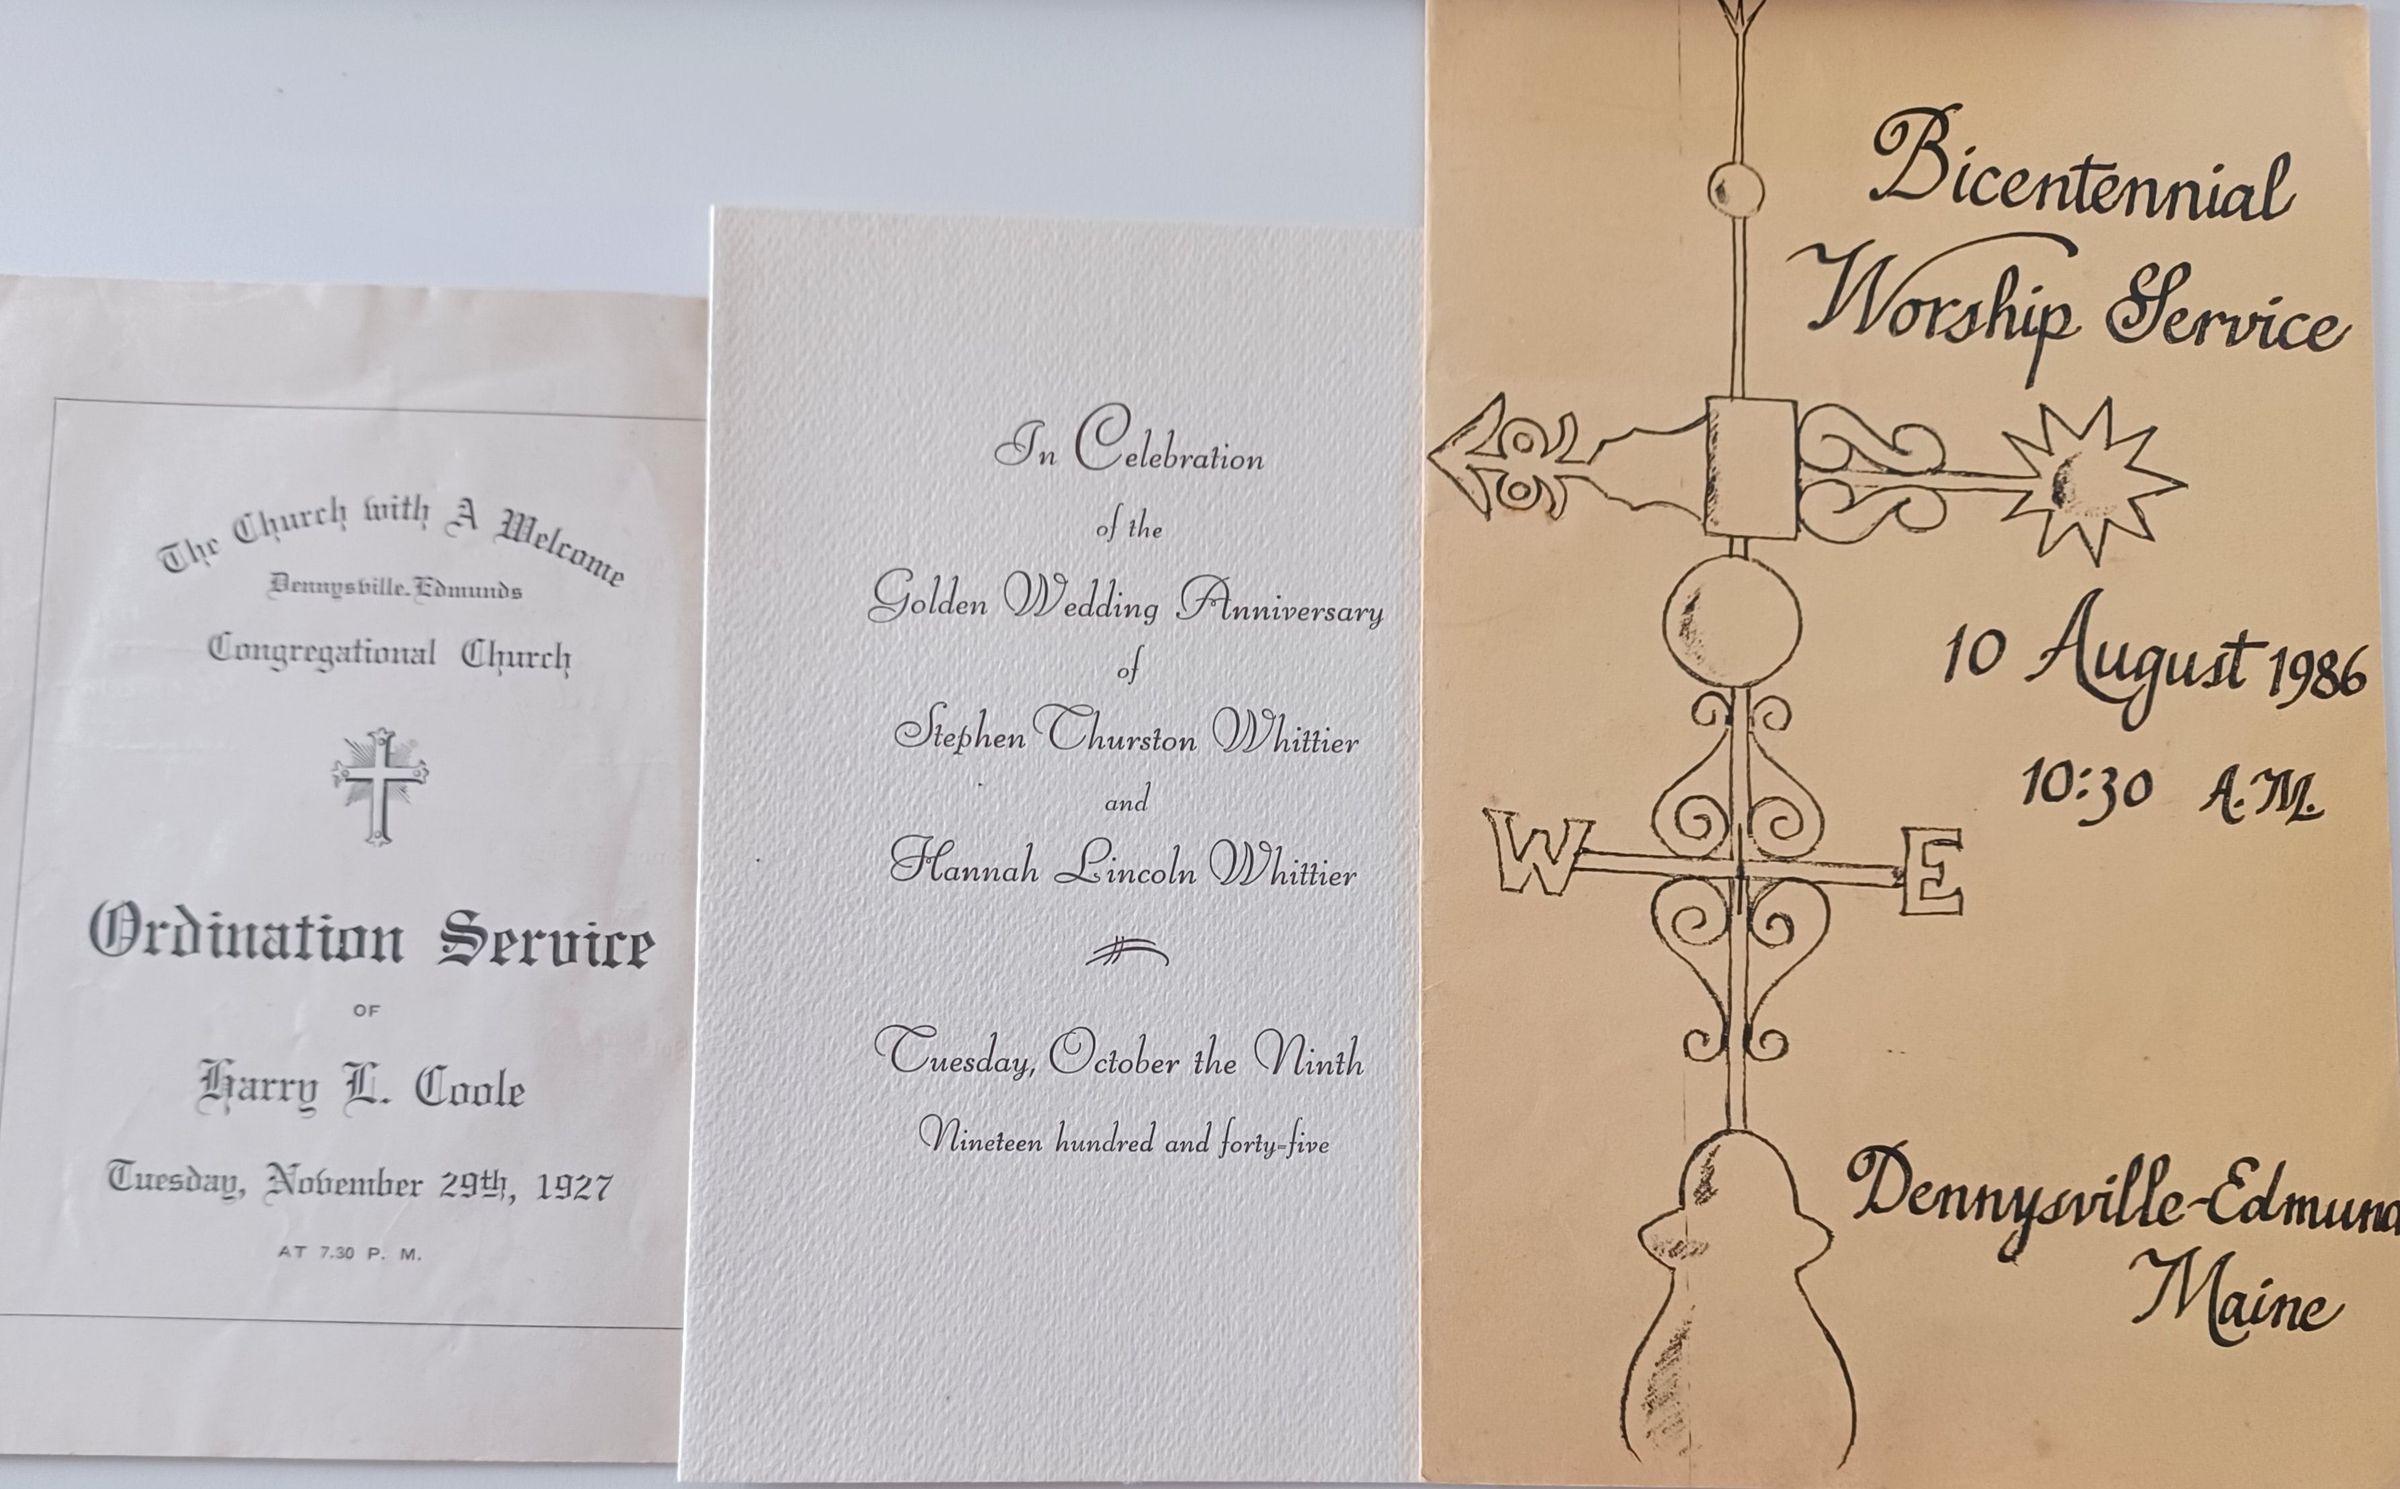 The Church with A Welcome
Dennysville-Edmunds
Congregational Church
Ordination Service
OF
Harry L. Coole
Tuesday, November 29th, 1927
AT 7.30 P. M.
In Celebration
of the
Golden Wedding Anniversary
of
Stephen Thurston Whittier
and
Hannah Lincoln Whittier
Tuesday, October the Ninth
Nineteen hundred and forty-five
Bicentennial
Worship Service
10 August 1986
10:30 A.M.
W E
Dennysville-Edmund
Maine